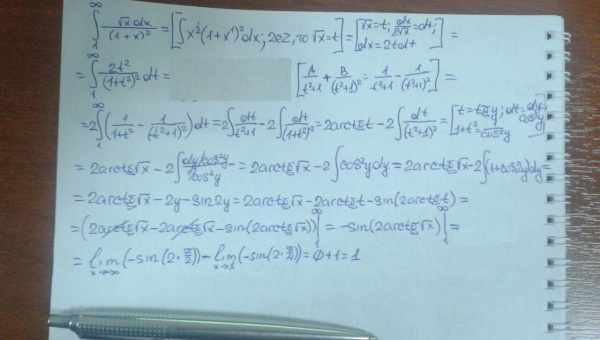 ∫₁^∞ √x dx/(1+x)² = [∫x^½(1+x¹)^-2 dx; 2∈Z, то √x=t] = [√x=t; dx/2√x=dt; dx=2tdt] =
= ∫₁^∞ 2t²/(1+t²)² dt = [A/(t²+1) + B/(t²+1)² = 1/(t²+1) - 1/(t²+1)²] =
= 2∫₁^∞ (1/(1+t²) - 1/(t²+1)²) dt = 2∫dt/(t²+1) - 2∫dt/(1+t²)² = 2arctg t - 2∫dt/(t²+1)² = [t=tg y; dt=dy/cos²y; 1+t²=1/cos²y] =
= 2arctg√x - 2∫dy cos⁴y/cos²y = 2arctg√x - 2∫cos²y dy = 2arctg√x - 2∫(1+cos2y)dy =
= 2arctg√x - 2y - sin2y = 2arctg√x - 2arctg t - sin(2arctg t) =
= (2arctg√x - 2arctg√x - sin(2arctg√x))|₁^∞ = -sin(2arctg√x)|₁^∞ =
= lim x→∞ (-sin(2·π/2)) - lim x→1 (-sin(2·π/4)) = 0+1 = 1